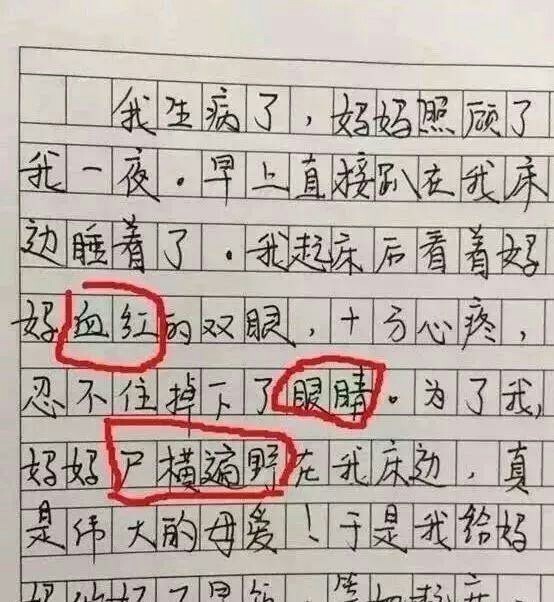 我生病了，妈妈照顾了
我一夜。早上直接趴在我床
边睡着了。我起床后看着妈
妈血红的双眼，十分心疼，
忍不住掉下了眼睛。为了我，
妈妈尸横遍野在我床边，真
是伟大的母爱！于是我给妈